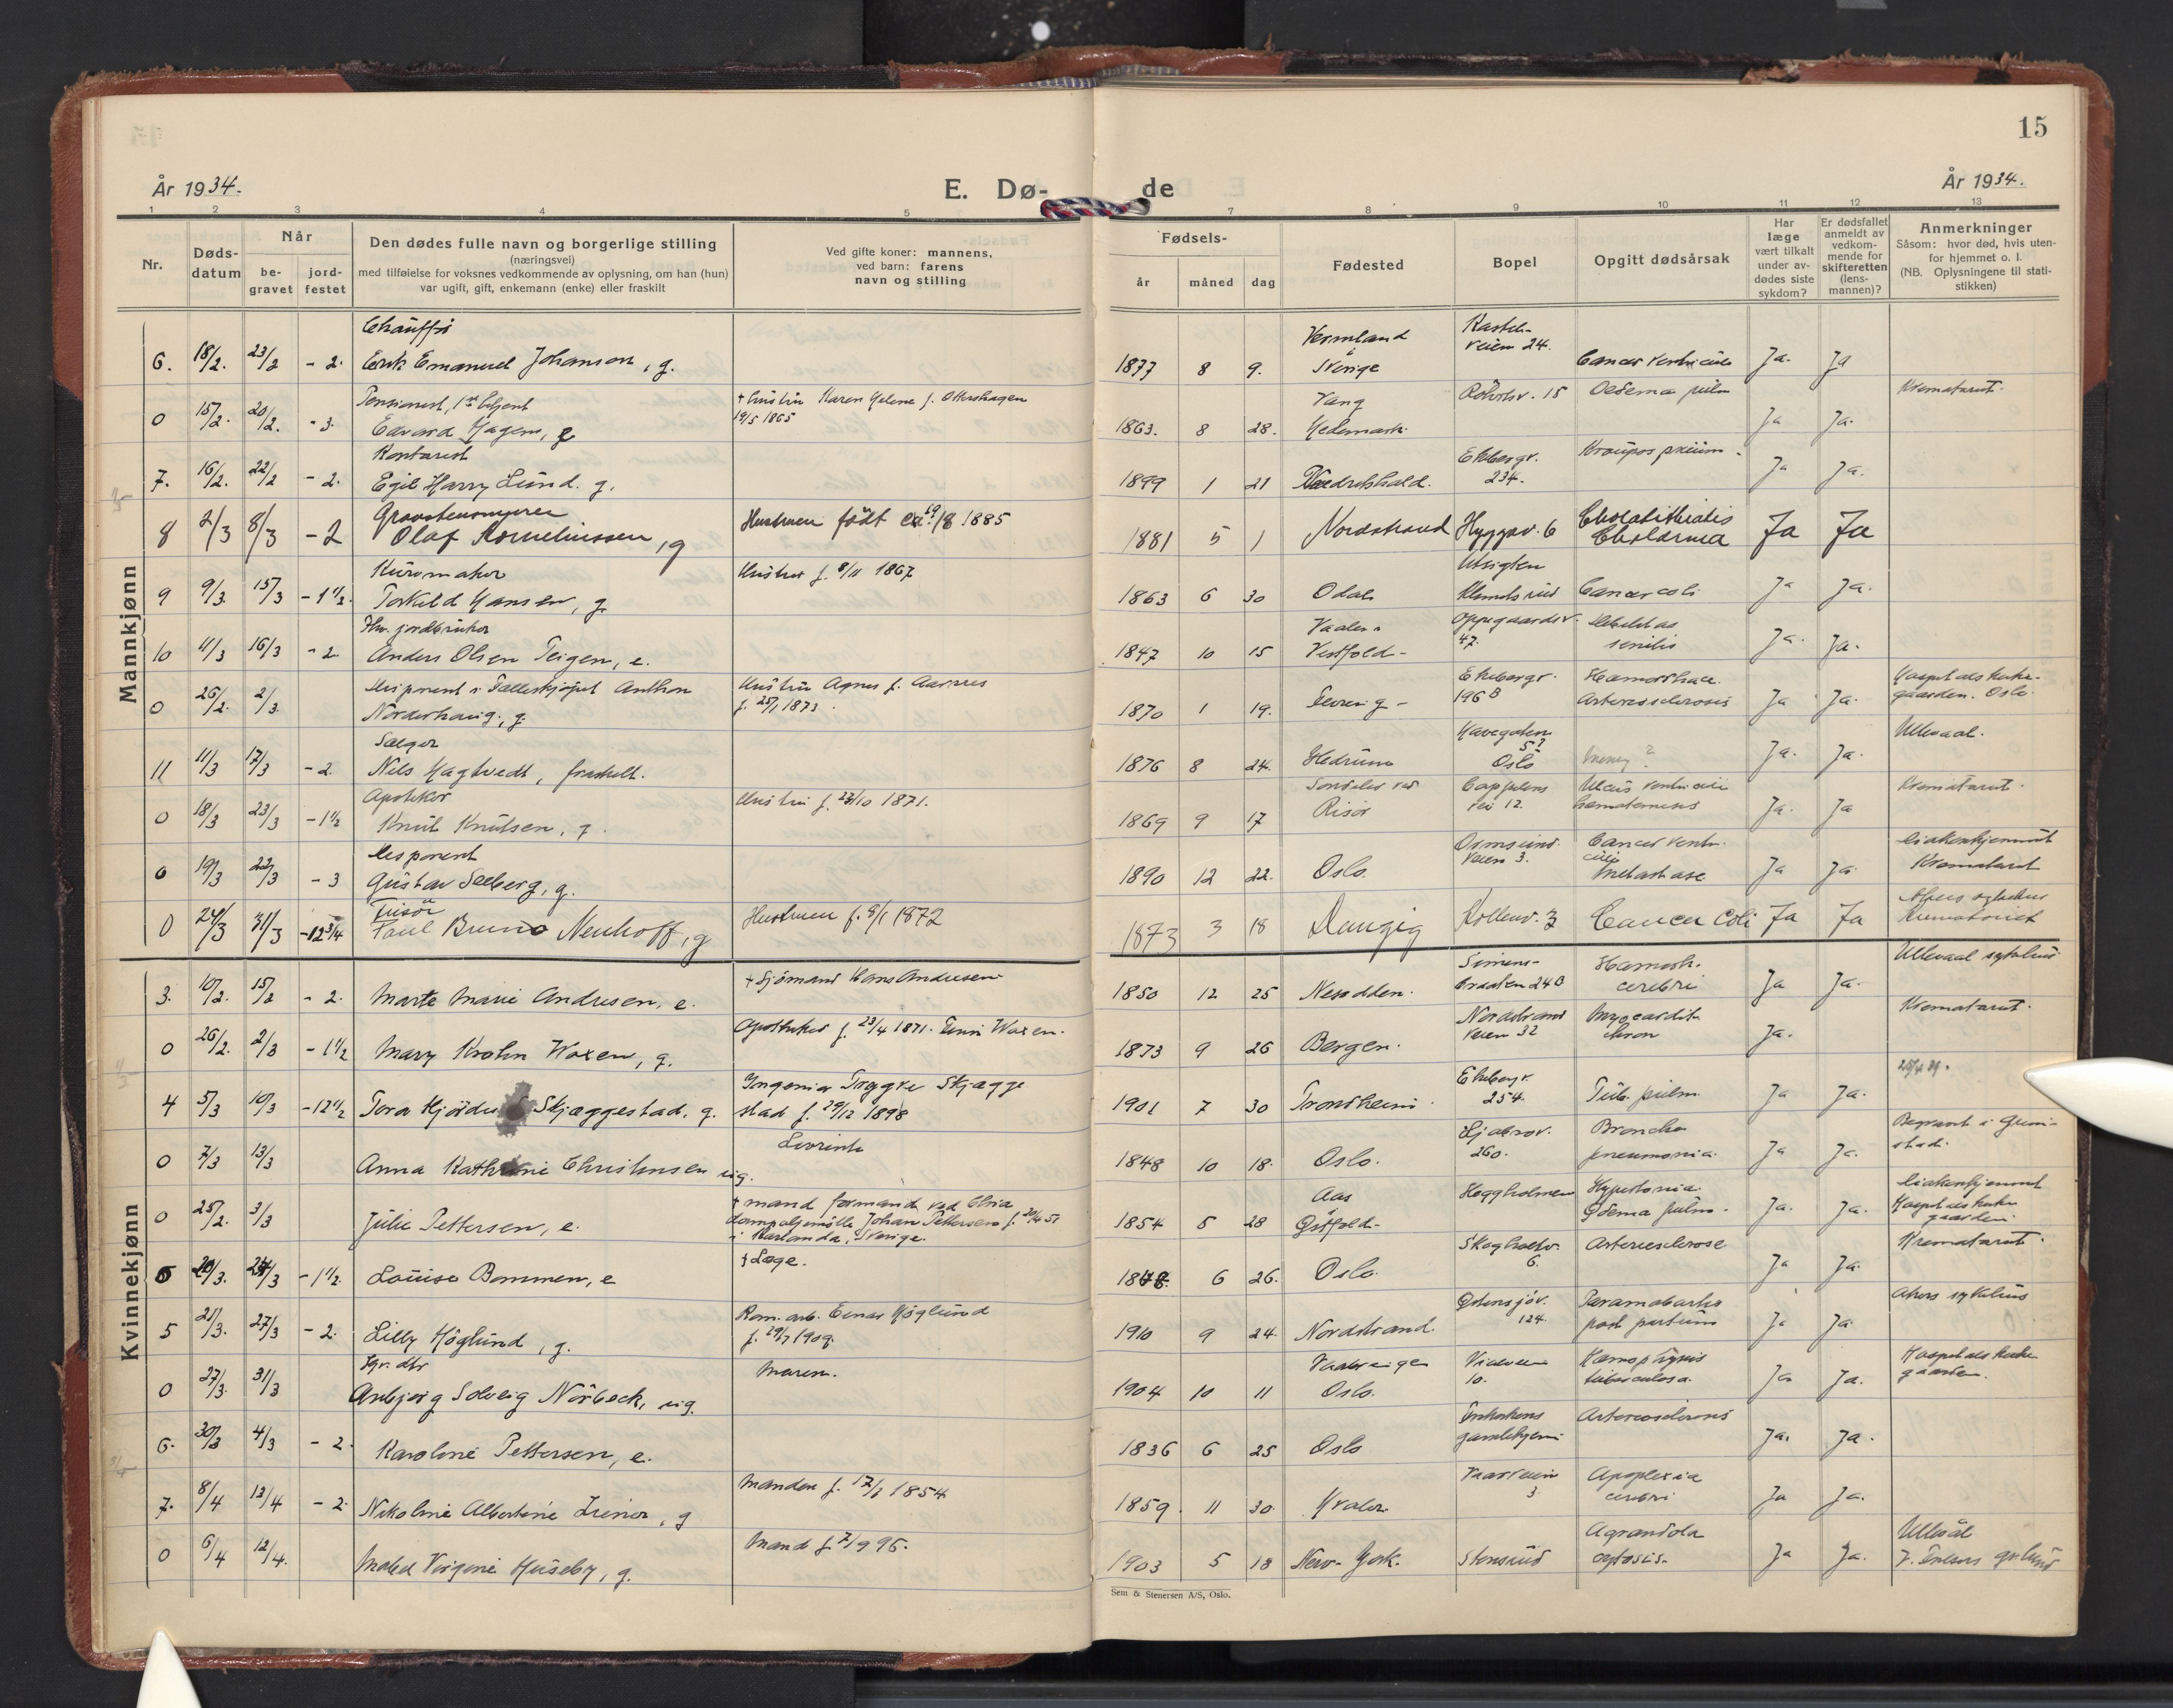 15
År 1934.
E. Dø-
de
År 1934.
1 2 3 4 5 7 8 9 10 11 12 13
Nr.
Døds-
datum
Når
be-
gravet
jord-
festet
Den dødes fulle navn og borgerlige stilling
(næringsvei)
med tilføielse for voksnes vedkommende av oplysning, om han (hun)
var ugift, gift, enkemann (enke) eller fraskilt
Ved gifte koner: mannens,
ved barn: farens
navn og stilling
Fødsels-
år måned dag
Fødested
Bopel
Opgitt dødsårsak
Har
læge
vært tilkalt
under av-
dødes siste
sykdom?
Er dødsfallet
anmeldt av
vedkom-
mende for
skifteretten
(lens-
mannen)?
Anmerkninger
Såsom: hvor død, hvis uten-
for hjemmet o. l.
(NB. Oplysningene til stati-
stikken)
Mannkjønn
Chauffør Vermland Kastel-
6. 18/2. 23/2 - 2. Erik Emanuel Johanson, g. 1877 8 9. i Sverige veien 24. Cancer ventriculi Ja. Ja
Pensionert, 1ste betjent + hustru Karen Helene f. Ottershagen Vang 15 Oedema pulm Krematoriet.
0 15/2. 20/2. - 3. Edvard Hagen, g 19/5 1865 1863. 8 28. Hedemark. Ja Ja.
Kontorist Ekebergv. Kroupøs pneum.
7. 16/2. 22/2 - 2. Egil Harry Lund. g. 1899 1 21 Fredrikshald. 234. Ja Ja.
8 2/3 8/3 - 2 Olaf Korneliussen, g Hustruen født 19/8 1885 1881 5 1 Nordstrand Hyggev. 6 Cholelithiatis Ja Ja
Kurvmaker Hustru f. 8/11 1867 Utsigten
9 9/3. 15/3 - 1 1/2. Torkild Hansen, g. 1863 6 30 Odal. Cancer coli Ja Ja.
Fhv. jordbruker Vaale i Oppegaardsv. Debilitas
10 11/3 16/3 - 2 Anders Olsen Teigen, e. 1847 10 15 Vestfold - 47. senilis Ja. Ja.
Disponent i Fælleskjøpet Anthon Hustru Agnes f. Aarnes Ekebergv. Hæmorrhace. Hospitalskirke-
0 26/2. 2/3. Norderhaug, g. f. 25/1 1873. 1870 1 19. 196 B Arteriosclerosis Ja Ja. gaarden. Oslo
Sælger Havegaten Ullevaal.
11 11/3 17/3 - 2. Nils Haghvedt, fraskilt. 1876 8 24. Hedrum 5? Oslo Ja. Ja.
Apoteker Hustru f. 23/10 1871. Søndeled ved Cappelens Ulcus ventriculi Krematoriet.
0 18/3 23/3 - 1 1/2 Knut Knutsen, g. 1869 9 17 Risør vei 12. Ja. Ja
Disponent Ormsund- Cancer ventri-
0 19/3 22/3 - 3 Gustav Seeberg, g. 1890 12 22. Oslo. veien 3. culi metastase Ja Ja Krematoriet
Frisør
0 24/3 31/3 -12 3/4 Paul Bruno Neuhoff, g Hustruen f. 8/1 1872 1873 3 18 Danzig Kollenv. 3 Cancer Coli Ja Ja Krematoriet
Kvinnekjønn
+ Sjømand Hans Andresen Simens- Hæmorh. Ullevaal sykehus
3. 10/2. 15/2 - 2. Marte Marie Andresen, e. 1850 12 25 Nesodden. braaten 24 B cerebri Ja Ja.
Apotheker f. 23/4 1871. Waxen. Nordstrand Myocardit Krematoriet.
0 26/2. 2/3 - 1 1/2 Mary Krohn Waxen, g. 1873 9 26 Bergen. veien 32 chron Ja.
Ingeniør Trygve Skjægge Ekebergv.
4 5/3 10/3 -12 1/2 Tora Hjørdis Skjæggestad. g. stad f. 29/12 1898 1901 7 30 Trondheim. 254. Tub. pulm. Ja Ja.
Ljabrov. Broncho Begravet i Grim-
0 7/3 13/3 Anna Kathrine Christensen ug. 1848 10 18. Oslo. 260. pneumonia. Ja Ja. stad.
+ mand formand ved Chria Aas Heggholmen Hypertonia.
0 25/2. 3/3 Julie Pettersen, e. dampoljemølle Johan Pettersen f. 51 i Karlanda, Sverige. 1854 5 28 Østfold - Ødema pulm. Ja. Ja. Hospitalskirke gaarden.
+ Læge. Skogholtv. Arteriesclerose Krematoriet.
20/3. 24/3 - 1 1/2. Louise Bommen, e 6 26. Oslo. 6. Ja Ja.
Rem. arb. Einar Høglund Østensjøv. Akers sykehus
5 21/3. 27/3 - 2. Lilly Höglund, g. f. 29/7 1909. 1910 9 24. Nordstrand. 124. post partum Ja Ja
Syr. dtr Maren. Vaalerengen Hæmoptysis Hospitalskirke
0 27/3. 31/3 Anbjørg Solveig Nörbeck, ug. 1904 10 11 Oslo. 10. tuberculosa. Ja Ja. gaarden.
Arteriosclerosis
6. 30/3 4/3 - 2. Karoline Pettersen, e. 1836 6 25 Oslo gamlehjem Ja. Ja.
Manden f. 1854 Vaarveien Apoplexia
7. 8/4 13/4 - 2. Nikoline Albertine, g 1859. 11 30. Hvaler. 3. cerebri Ja Ja.
Mand f. 7/9 96. Agranulo Ullevål
0 6/4 12/4. Mabel Virginie Huseby, g. 1903 5 18 New-York. Stensrud cytosis. Ja Ja.
Sem & Stenersen A/S, Oslo.